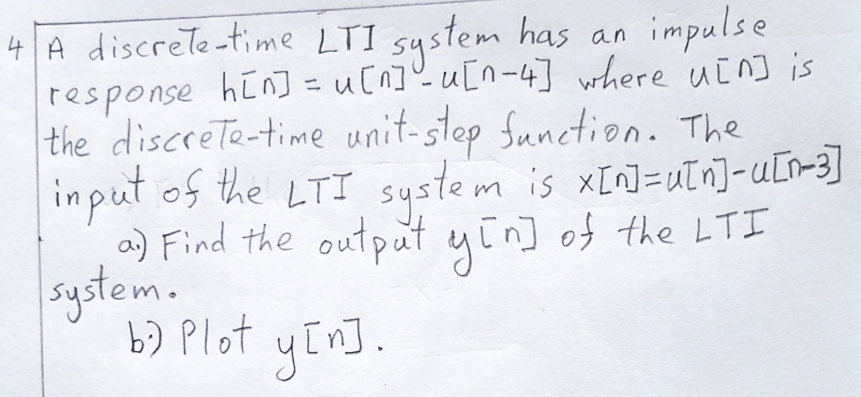 4 A discrete-time LTI system has an impulse
response h[n] = u[n] - u[n-4] where u[n] is
the discrete-time unit-step function. The
input of the LTI system is x[n]=u[n]-u[n-3]
a.) Find the output y[n] of the LTI
system.
b.) Plot y[n].